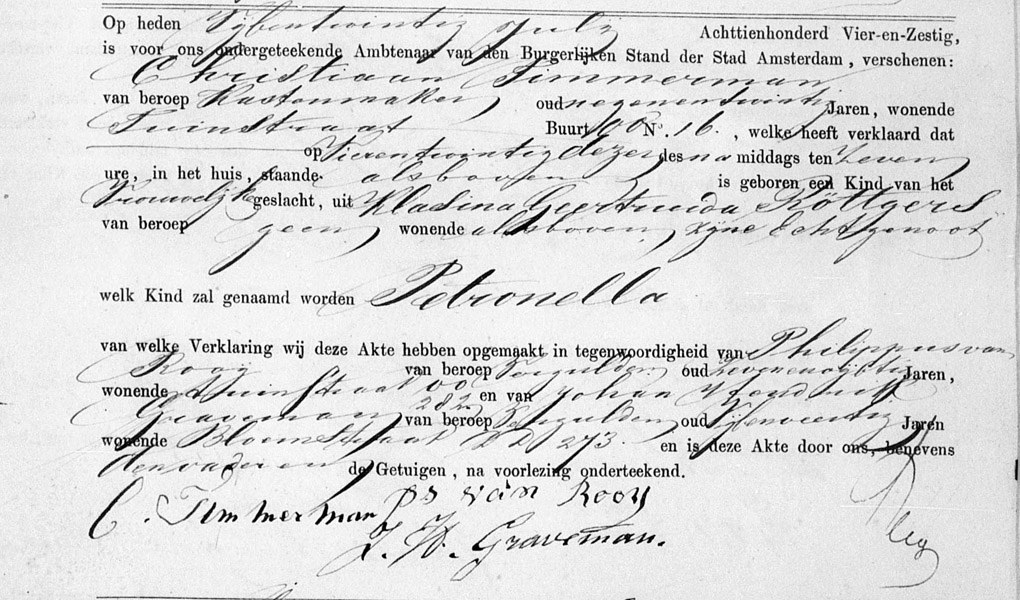 Op heden Vijfentwintig July Achttienhonderd Vier-en-Zestig,
is voor ons ondergeteekende Ambtenaar van den Burgerlijken Stand der Stad Amsterdam, verschenen:
Christiaan Timmerman
van beroep Kastenmaker oud negenentwintig Jaren, wonende
Tuinstraat Buurt No. 16., welke heeft verklaard dat
op Vierentwintig dezer des na middags ten Zeven
ure, in het huis, staande alsboven is geboren een Kind van het
Vrouwelijk geslacht, uit Klasina Geertruida Böttgers
van beroep geen wonende alsboven, zijne Echtgenoot
welk Kind zal genaamd worden Petronella
van welke Verklaring wij deze Akte hebben opgemaakt in tegenwoordigheid van Philippus van
Rooy van beroep Vergulder oud Jaren,
wonende Tuinstraat OO 282 en van Johan Hendrik
Graveman van beroep Vergulder oud Jaren
wonende Bloemstraat DD 273. en is deze Akte door ons, benevens
den vader en de Getuigen, na voorlezing onderteekend.
C. Timmerman ps van Rooy
J. H. Graveman.